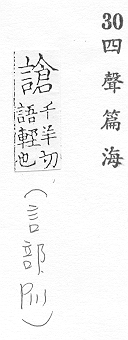 30四聲篇海
謒千羊切
語輕也
（言部，P111）